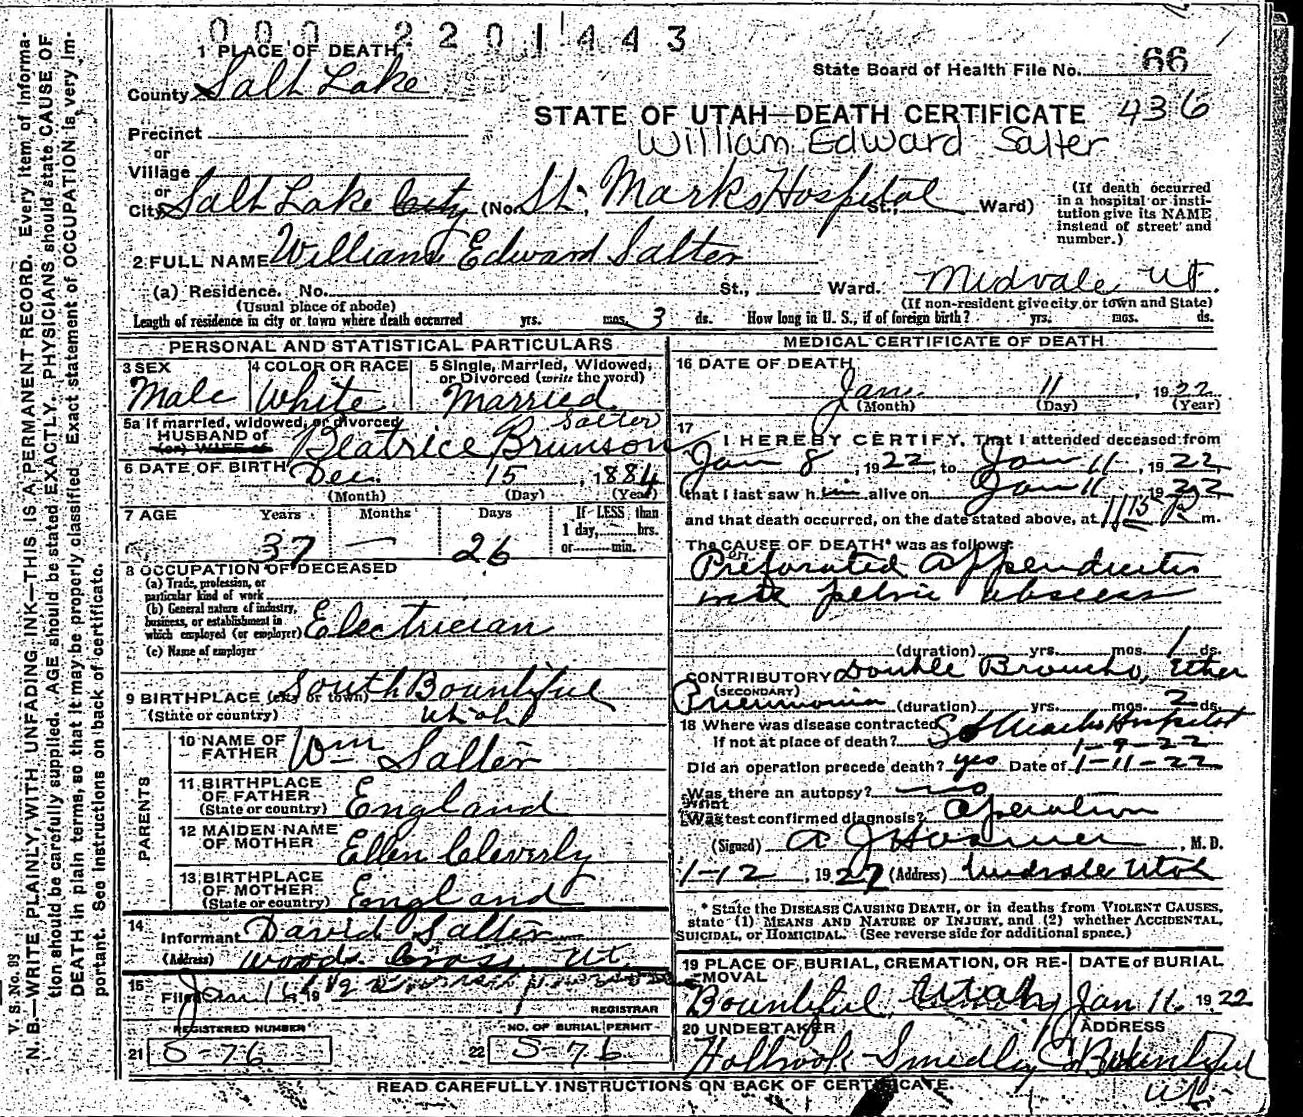 0002201443
1 PLACE OF DEATH
County Salt Lake
State Board of Health File No. 66
STATE OF UTAH—DEATH CERTIFICATE 436
William Edward Salter
Precinct
or
Village
or
City Salt Lake City (No. St. Marks Hospital St., Ward)
(If death occurred in a hospital or institution give its NAME instead of street and number.)
2 FULL NAME William Edward Salter
(a) Residence. No. St., Ward. Midvale Ut.
(Usual place of abode) (If non-resident give city or town and State)
Length of residence in city or town where death occurred yrs. mos. 3 ds. How long in U. S., if of foreign birth? yrs. mos. ds.
PERSONAL AND STATISTICAL PARTICULARS
3 SEX Male
4 COLOR OR RACE White
5 Single, Married, Widowed, or Divorced (write the word) Married
5a If married, widowed, or divorced
HUSBAND of
(or) WIFE of
Beatrice Brunson Salter
6 DATE OF BIRTH Dec. 15, 1884
(Month) (Day) (Year)
7 AGE Years Months Days If LESS than 1 day, hrs. or min.
37 — 26
8 OCCUPATION OF DECEASED
(a) Trade, profession, or particular kind of work
(b) General nature of industry, business, or establishment in which employed (or employer) Electrician
(c) Name of employer
9 BIRTHPLACE (city or town) South Bountiful
(State or country) Utah
PARENTS
10 NAME OF FATHER Wm Salter
11 BIRTHPLACE OF FATHER (State or country) England
12 MAIDEN NAME OF MOTHER Ellen Cleverly
13 BIRTHPLACE OF MOTHER (State or country) England
14 Informant David Salter
(Address) Woods Cross, Ut.
15 Filed Jan 16 192
REGISTRAR
REGISTERED NUMBER
21 S-76
NO. OF BURIAL PERMIT
22 S-76
MEDICAL CERTIFICATE OF DEATH
16 DATE OF DEATH
Jan. 11 1922
(Month) (Day) (Year)
17 I HEREBY CERTIFY, That I attended deceased from
Jan 8, 1922, to Jan 11, 1922
that I last saw him alive on Jan 11 1922
and that death occurred, on the date stated above, at 11 15 P m.
The CAUSE OF DEATH* was as follows:
Preforated Appendicitis
with pelvic abscess
(duration) yrs. mos. 1 ds.
CONTRIBUTORY Double Broncho, Ether
(SECONDARY)
Pneumonia (duration) yrs. mos. 2 ds.
18 Where was disease contracted
If not at place of death? St Marks Hospital
1-9-22
Did an operation precede death? yes Date of 1-11-22
Was there an autopsy? no
What test confirmed diagnosis? Operation
(Signed) A J Hosmer, M. D.
1-12, 1922 (Address) Midvale Utah
* State the DISEASE CAUSING DEATH, or in deaths from VIOLENT CAUSES, state (1) MEANS AND NATURE OF INJURY, and (2) whether ACCIDENTAL, SUICIDAL, or HOMICIDAL. (See reverse side for additional space.)
19 PLACE OF BURIAL, CREMATION, OR REMOVAL
Bountiful, Utah
DATE of BURIAL
Jan 16, 1922
20 UNDERTAKER
Holbrook Smedley Co
ADDRESS
Bountiful Ut.
READ CAREFULLY INSTRUCTIONS ON BACK OF CERTIFICATE.
V. S. No.
N. B.—WRITE PLAINLY, WITH UNFADING INK—THIS IS A PERMANENT RECORD. Every item of information should be carefully supplied. AGE should be stated EXACTLY. PHYSICIANS should state CAUSE OF DEATH in plain terms, so that it may be properly classified. Exact statement of OCCUPATION is very important. See instructions on back of certificate.